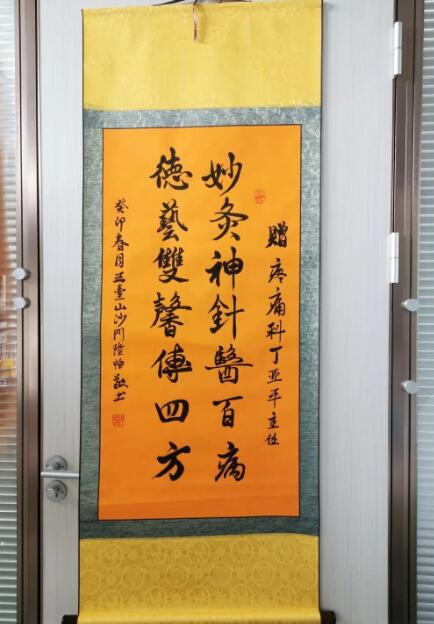 赠疼痛科丁亚平主任
妙灸神針醫百病
德藝雙馨傳四方
癸卯春月五臺山沙門隆怡敬书